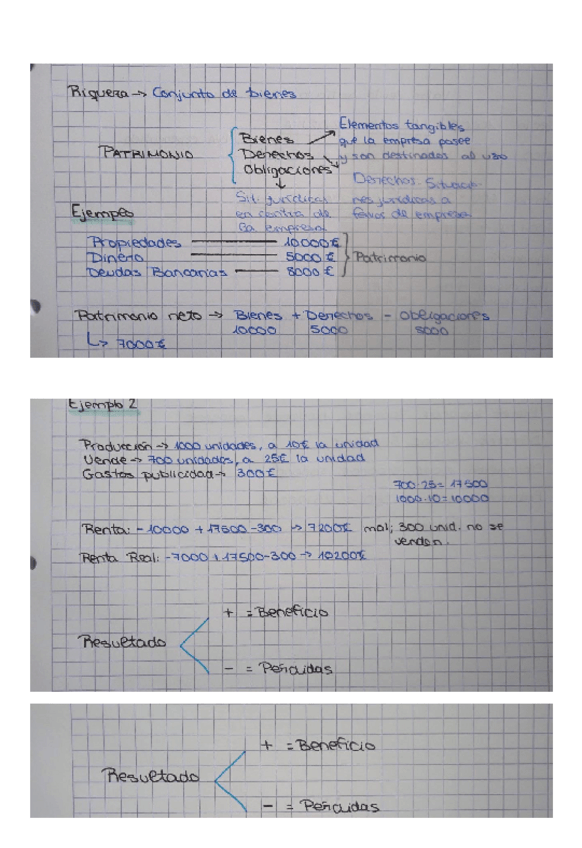 Riqueza → Conjunto de bienes
PATRIMONIO
Bienes
Derechos
Obligaciones
Elementos tangibles
que la empresa posee
y son destinados al uso
Derechos. Situacio-
nes jurídicas a
favos de empresa
Sit. jurídicas
en contra de
la empresa
Ejemplo
Propiedades — 10000€
Dinero — 5000€
Deudas Bancarias — 8000€
Patrimonio
Patrimonio neto → Bienes + Derechos - obligaciones
10000 5000
↳ 7000€
Ejemplo 2
Producción → 1000 unidades, a 10€ la unidad
Vende → 700 unidades, a 25€ la unidad
Gastos publicidad → 300€
700·25 = 17500
1000·10 = 10000
Renta: -10000 + 17500 - 300 → 7200€ mal; 300 unid. no se
venden.
Renta Real: -7000 + 17500 - 300 → 10200€
+ = Beneficio
Resultado
- = Pérdidas
+ = Beneficio
Resultado
- = Pérdidas